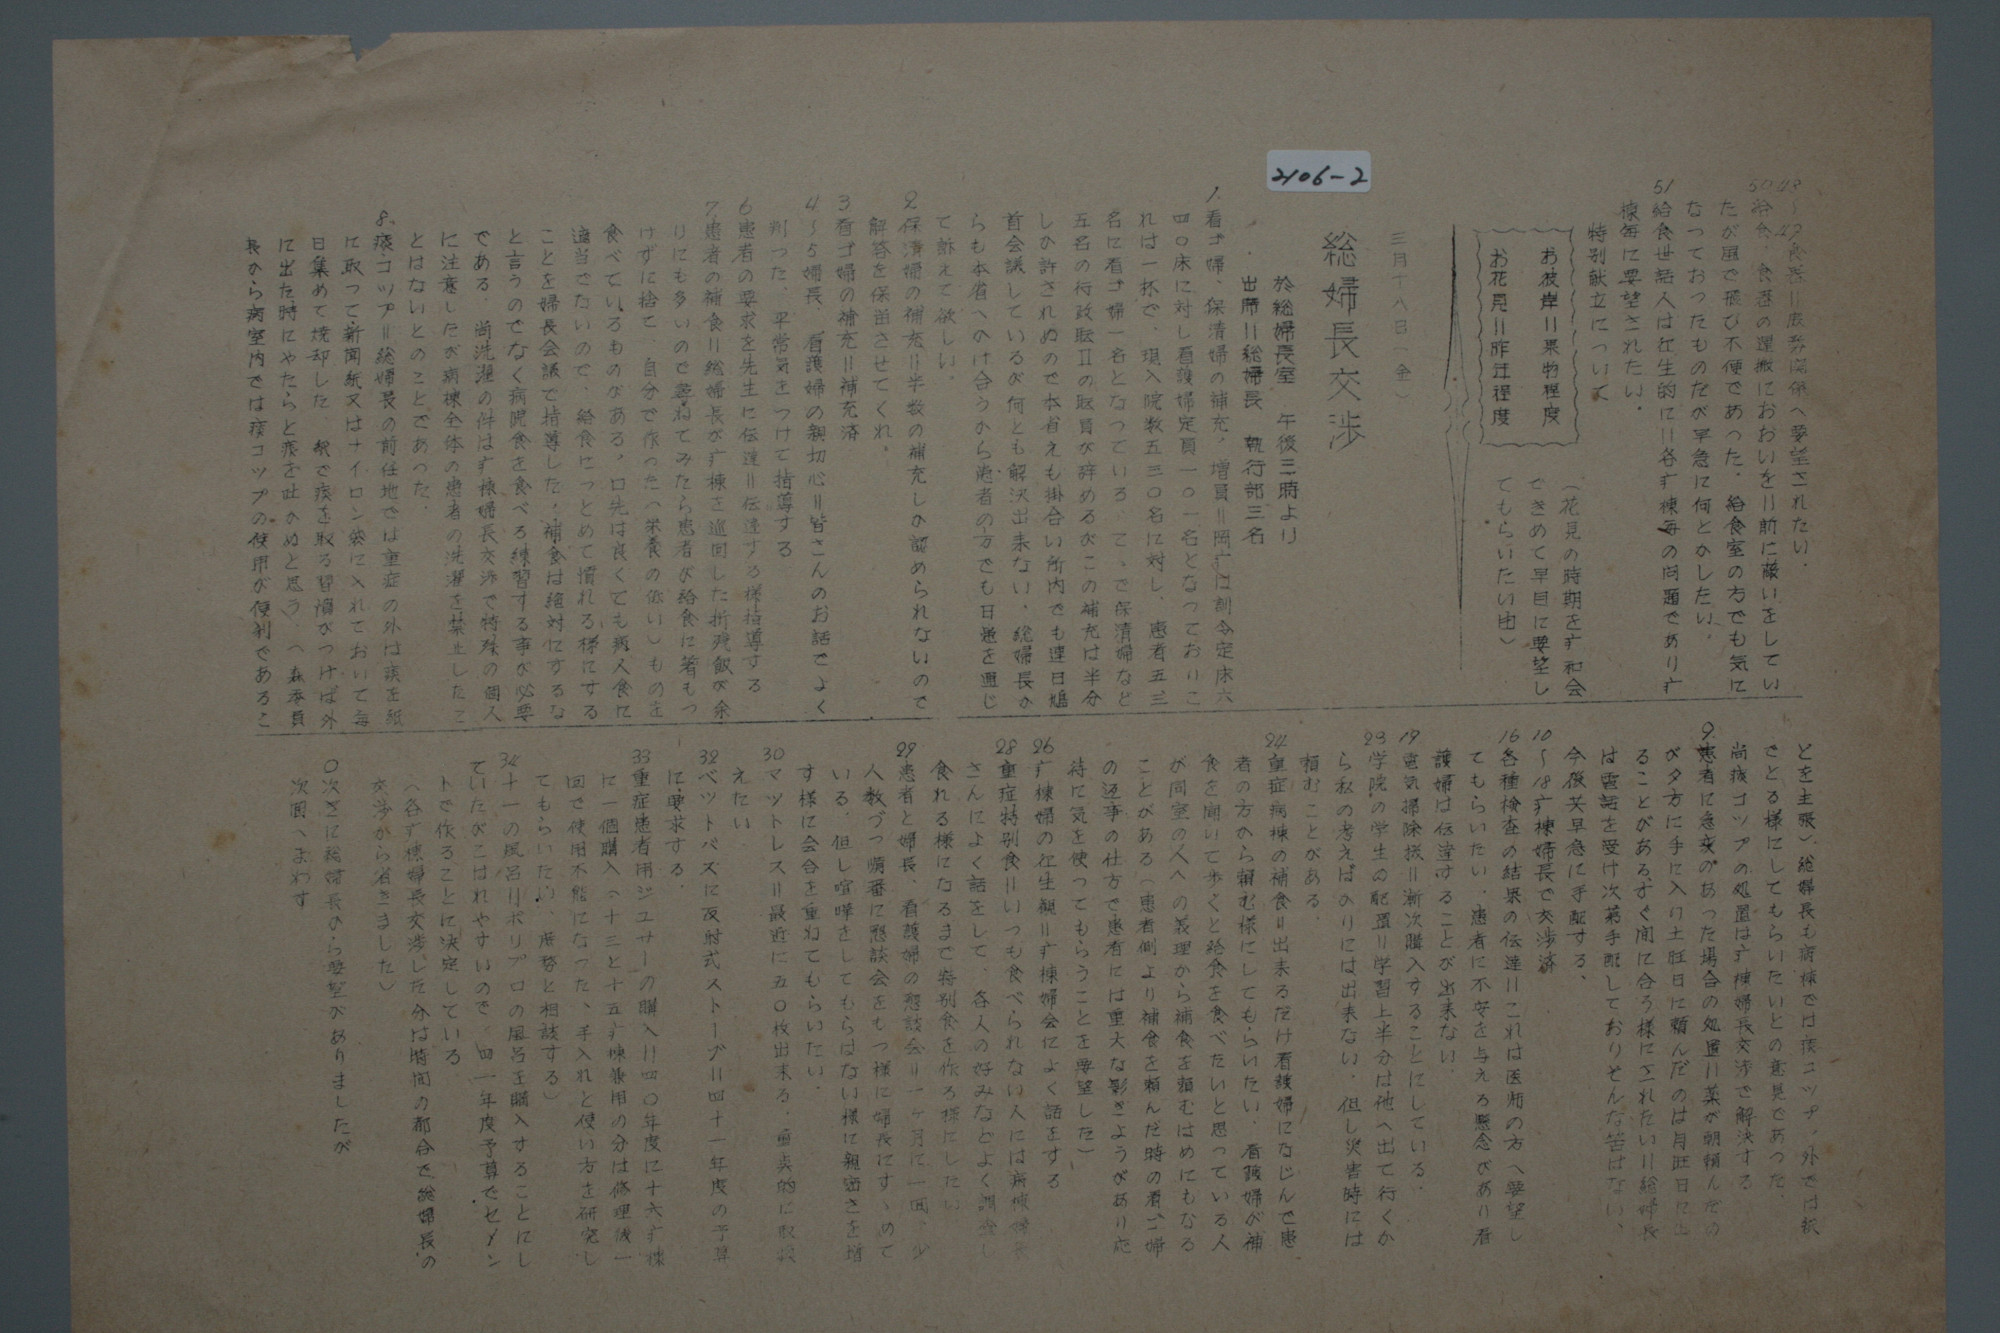 2106-2
48〜49食器=庶務関係へ要望されたい.
50給食、食器の運搬におおいを=前に蔽いをしてい
たが風で飛び不便であった.給食室の方でも気に
なっておったものだが早急に何とかしたい.
51給食世話人は在生的に=各疒棟毎の問題であり疒
棟毎に要望されたい.
特別献立について
お彼岸=果物程度
お花見=昨年程度
(花見の時期を疒和会
できめて早目に要望し
てもらいたい由)
三月十八日(金)
総婦長交渉
於総婦長室 午後三時より
出席=総婦長 執行部三名
1.看ゴ婦、保清婦の補充,増員=岡疒は訓令定床六
四〇床に対し看護婦定員一〇一名となっておりこ
れは一杯で、現入院数五三〇名に対し、患者五三
名に看ゴ婦一名となっている.こゝで保清婦など
五名の行政職IIの職員が辞めるがこの補充は半分
しか許されぬので本省えも掛合い所内でも連日鳩
首会議しているが何とも解決出来ない.総婦長か
らも本省へかけ合うから患者の方でも日患を通じ
て訴えて欲しい.
2.保清婦の補充=半数の補充しか認められないので
解答を保留させてくれ.
3看ゴ婦の補充=補充済
4〜5婦長、看護婦の親切心=皆さんのお話でよく
判った、平常気をつけて指導する
6患者の要求を先生に伝達=伝達する様指導する
7.患者の補食=総婦長が疒棟を巡回した折残飯が余
りにも多いので尋ねてみたら患者が給食に箸もつ
けずに捨て、自分で作った(栄養の低い)ものを
食べているものがある.口先は良くても病人食に
適当でないので、給食につとめて慣れる様にする
ことを婦長会議で指導した.補食は絶対にするな
と言うのでなく病院食を食べる練習する事が必要
である.尚洗濯の件は疒棟婦長交渉で特殊の個人
に注意したが病棟全体の患者の洗濯を禁止したこ
とはないとのことであった.
8.痰コップ=総婦長の前任地では重症の外は痰を紙
に取って新聞紙又はナイロン袋に入れておいて毎
日集めて焼却した 紙で痰を取る習慣がつけば外
に出た時にやたらと痰を吐かぬと思う.(森委員
長から病室内では痰コップの使用が便利であるこ
とを主張)総婦長も病棟では痰コップ.外では紙
でとる様にしてもらいたいとの意見であった.
尚痰コップの処置は疒棟婦長交渉で解決する
9.患者に急変のあった場合の処置=薬が朝頼んだの
が夕方に手に入り土旺日に頼んだのは月旺日に出
ることがある.すぐ間に合う様にされたい=総婦長
は電話を受け次第手配しておりそんな筈はない、
今后共早急に手配する.
10〜18疒棟婦長で交渉済
16各種検査の結果の伝達=これは医師の方へ要望し
てもらいたい.患者に不安を与える懸念があり看
護婦は伝達することが出来ない
19電気掃除機=漸次購入することにしている.
23学院の学生の配置=学習上半分は他へ出て行くか
ら私の考えばかりには出来ない.但し災害時には
頼むことがある.
24重症病棟の補食=出来るだけ看護婦になじんで患
者の方から頼む様にしてもらいたい.看護婦が補
食を聞いて歩くと給食を食べたいと思っている人
が同室の人への義理から補食を頼むはめにもなる
ことがある(患者側より補食を頼んだ時の看ご婦
の返事の仕方で患者には重大な影きようがあり応
待に気を使ってもらうことを要望した)
26疒棟婦の在生観=疒棟婦会によく話をする
28重症特別食=いつも食べられない人には病棟婦長
さんによく話をして、各人の好みなどよく調査し
食れる様になるまで特別食を作る様にしたい
29患者と婦長、看護婦の懇談会=一ヶ月に一回、少
人数づつ順番に懇談会をもつ様に婦長にすゝめて
いる.但し喧嘩をしてもらはない様に親密さを増
す様に会合を重ねてもらいたい.
30マットレス=最近に五〇枚出来る.重点的に取換
えたい
32ベットバスに反射式ストーブ=四十一年度の予算
に要求する.
33重症患者用ジューサーの購入=四〇年度に十六疒棟
に一個購入(十三と十五疒棟兼用の分は修理後一
回で使用不能になった、手入れと使い方を研究し
てもらいたい.庶務と相談する)
34十一の風呂=ポリプロの風呂を購入することにし
ていたがこはれやすいので 四一年度予算でセメン
トで作ることに決定している
(各疒棟婦長交渉した分は時間の都合で総婦長の
交渉から省きました)
〇次ぎに総婦長から要望がありましたが
次回へまわす